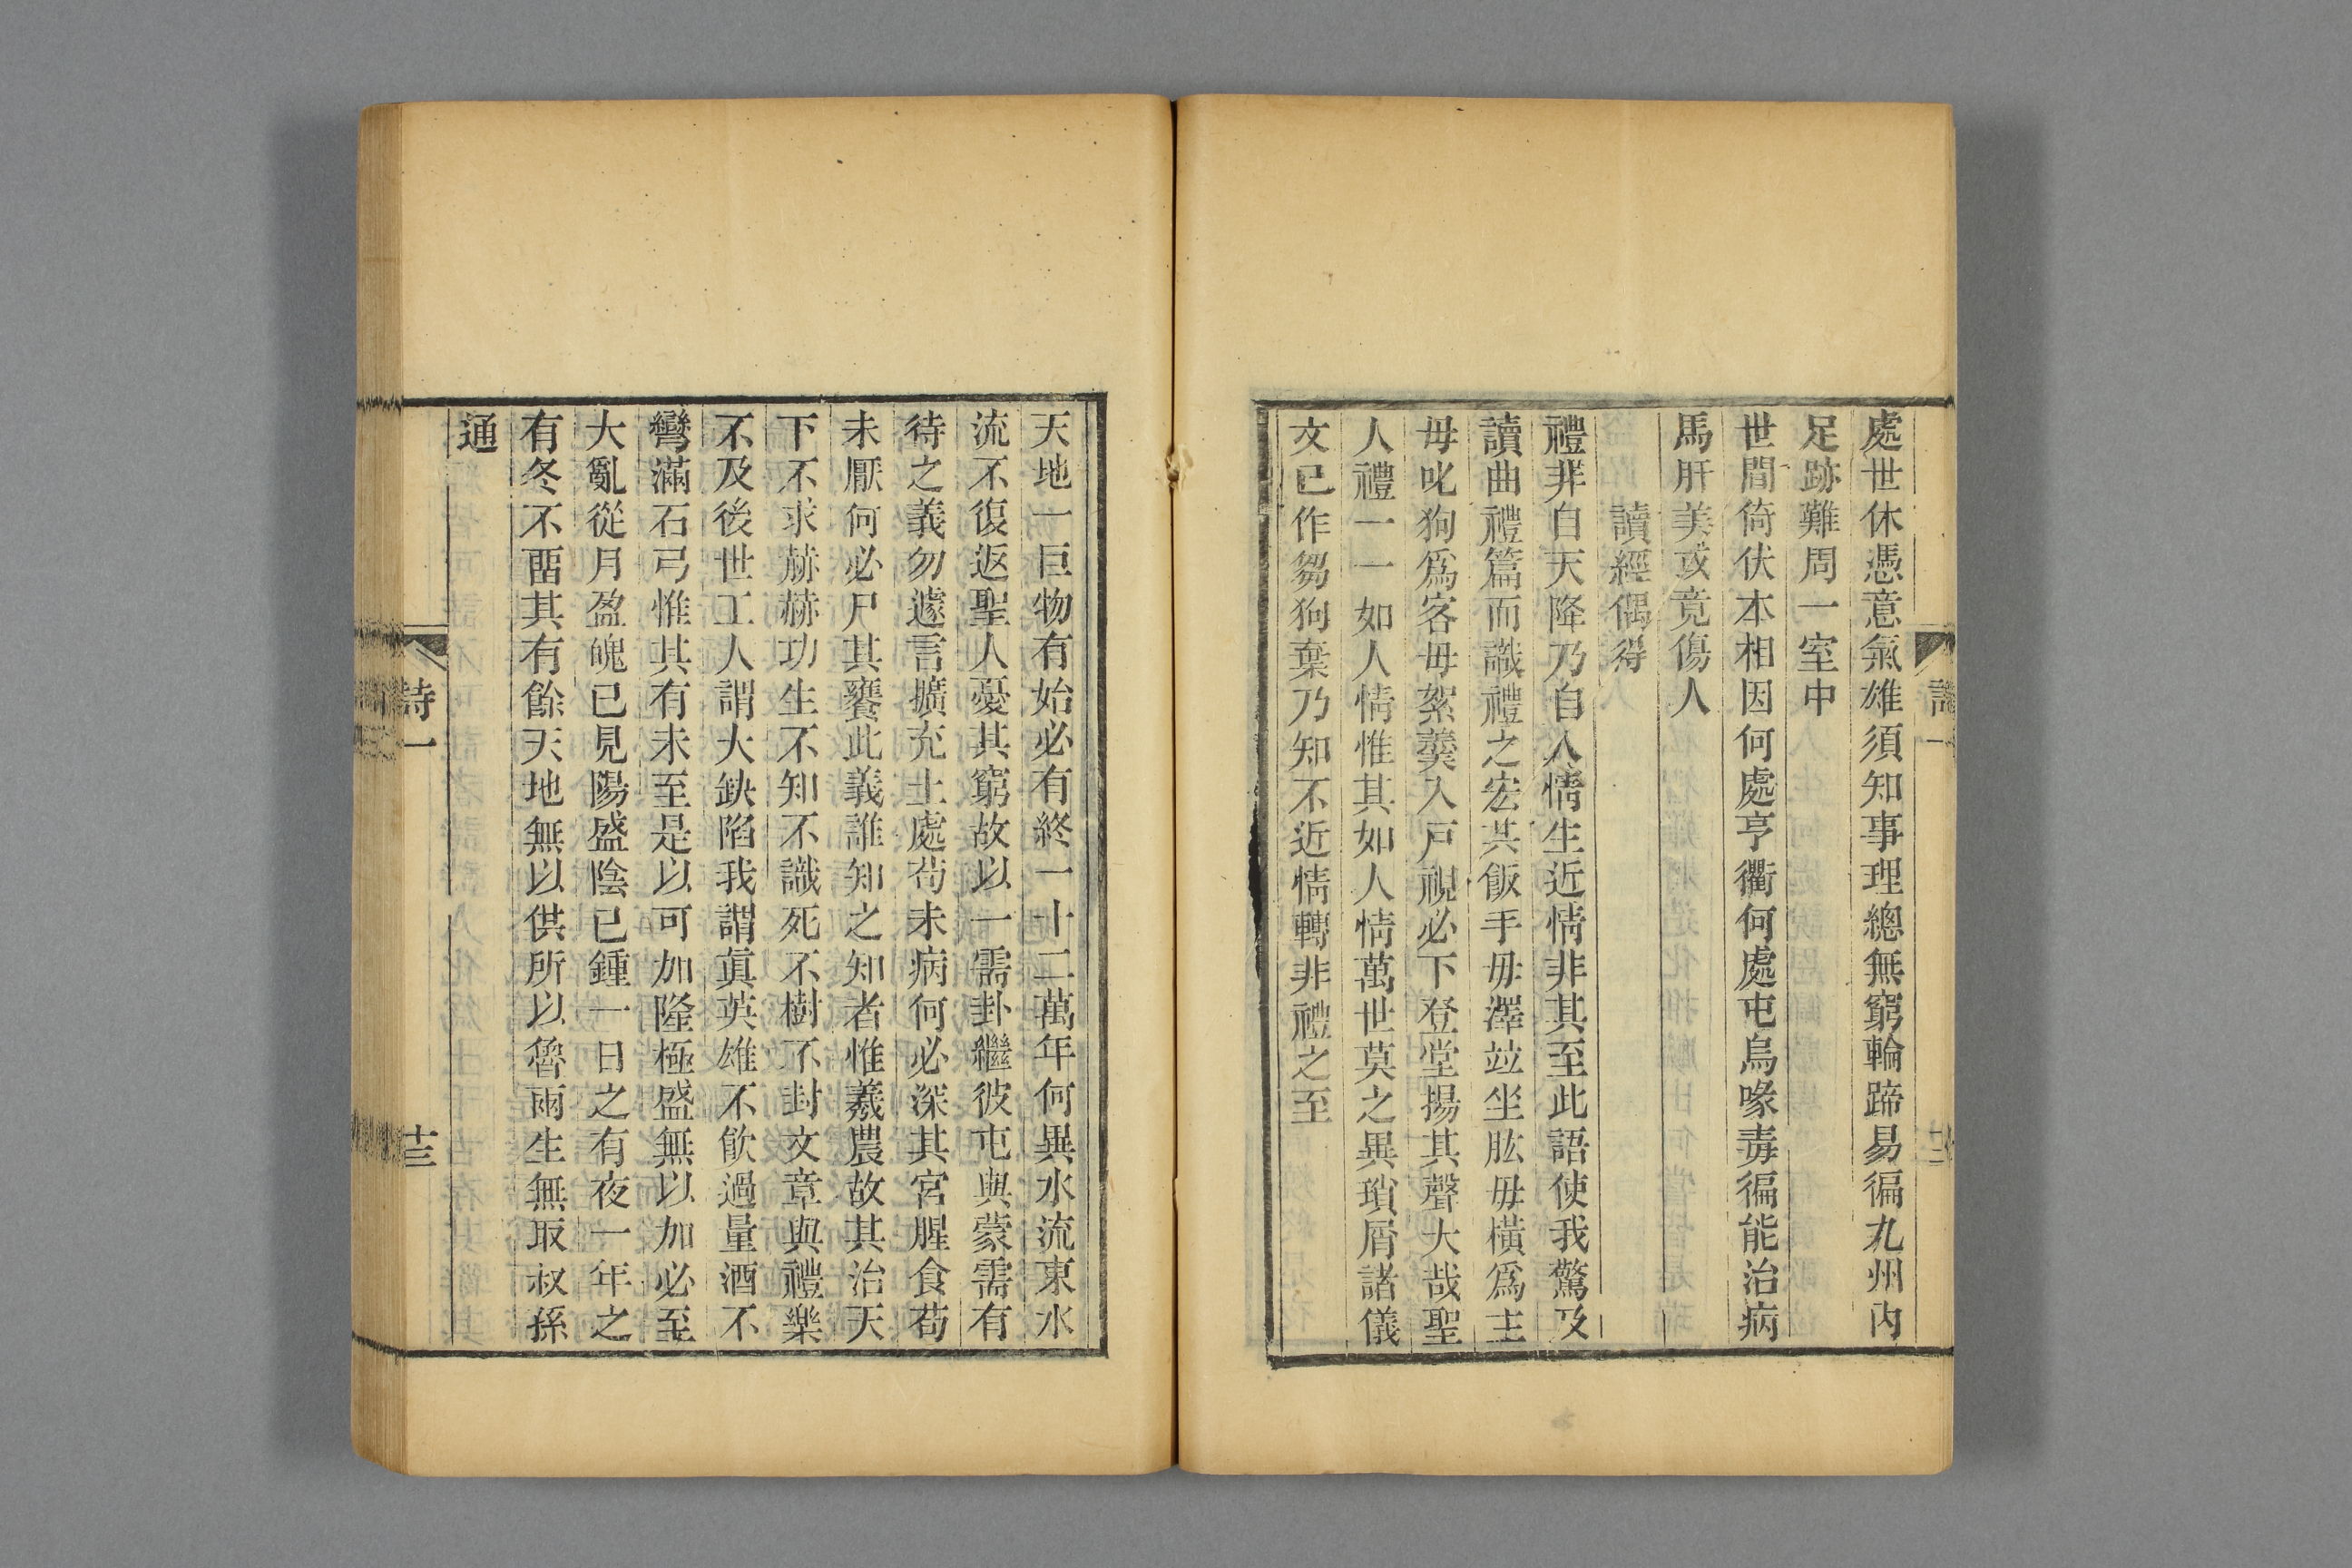 處世休憑意氣雄須知事理總無窮輪蹄易徧九州內
足跡難周一室中
世間倚伏本相因何處亨衢何處屯烏喙毒徧能治病
馬肝美或竟傷人
讀經偶得
禮非自天降乃自人情生近情非其至此語使我驚及
讀曲禮篇而識禮之宏共飯手毋澤竝坐肱毋橫爲主
毋叱狗爲客毋絮羹入戸視必下登堂揚其聲大哉聖
人禮一一如人情惟其如人情萬世莫之異瑣屑諸儀
文已作芻狗棄乃知不近情轉非禮之至
天地一巨物有始必有終一十二萬年何異水流東水
流不復返聖人憂其窮故以一需卦繼彼屯與蒙需有
待之義勿遽言擴充土處苟未病何必深其宮腥食苟
未厭何必尸其饔此義誰知之知者惟羲農故其治天
下不求赫赫功生不知不識死不樹不封文章與禮樂
不及後世工人謂大缺陷我謂眞英雄不飲過量酒不
彎滿石弓惟其有未至是以可加隆極盛無以加必至
大亂從月盈魄已見陽盛陰已鍾一日之有夜一年之
有冬不畱其有餘天地無以供所以魯兩生無取叔孫
通
詩一
十三